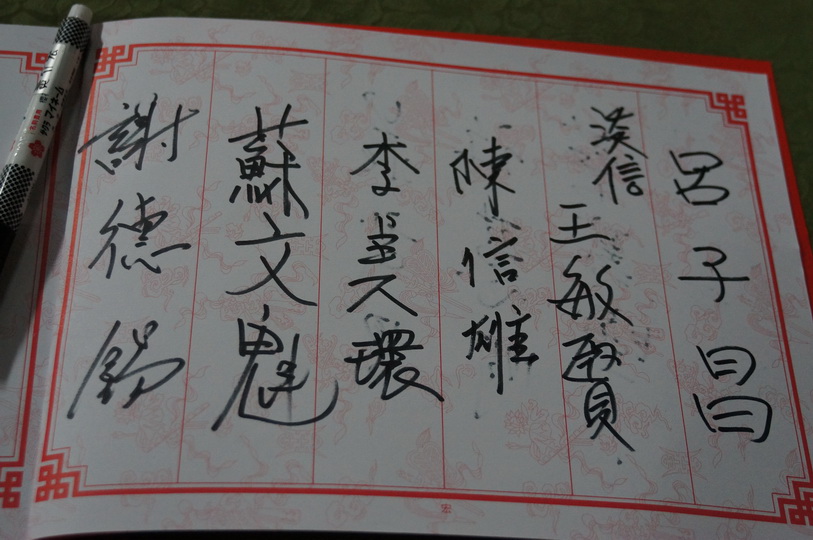 呂子昌
淡信
王敏賢
陳信雄
李金環
蘇文魁
謝德錫